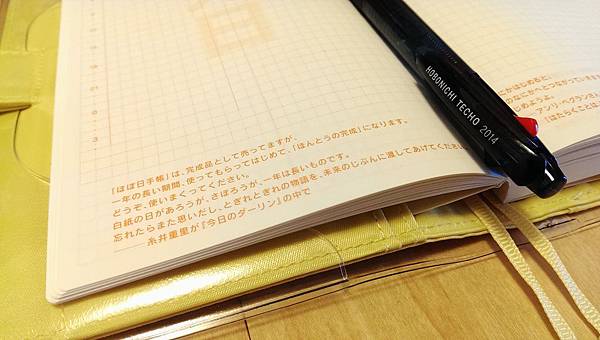 HOBONICHI TECHO 2014
「ほぼ日手帳」は、完成品として売ってますが、
一年の長い期間、使ってもらってはじめて、「ほんとうの完成」になります。
どうぞ、使いまくってください。
白紙の日があろうが、さぼろうが、一年は長いものです。
忘れたらまた思いだし、とぎれとぎれの物語を、未来のじぶんに渡してあげてくださ
糸井重里が『今日のダーリン』の中で
にかはじめると、
のなにかへとつながっていきま
じめようよ。
アンリ・ベグランさん
『はたらくことは